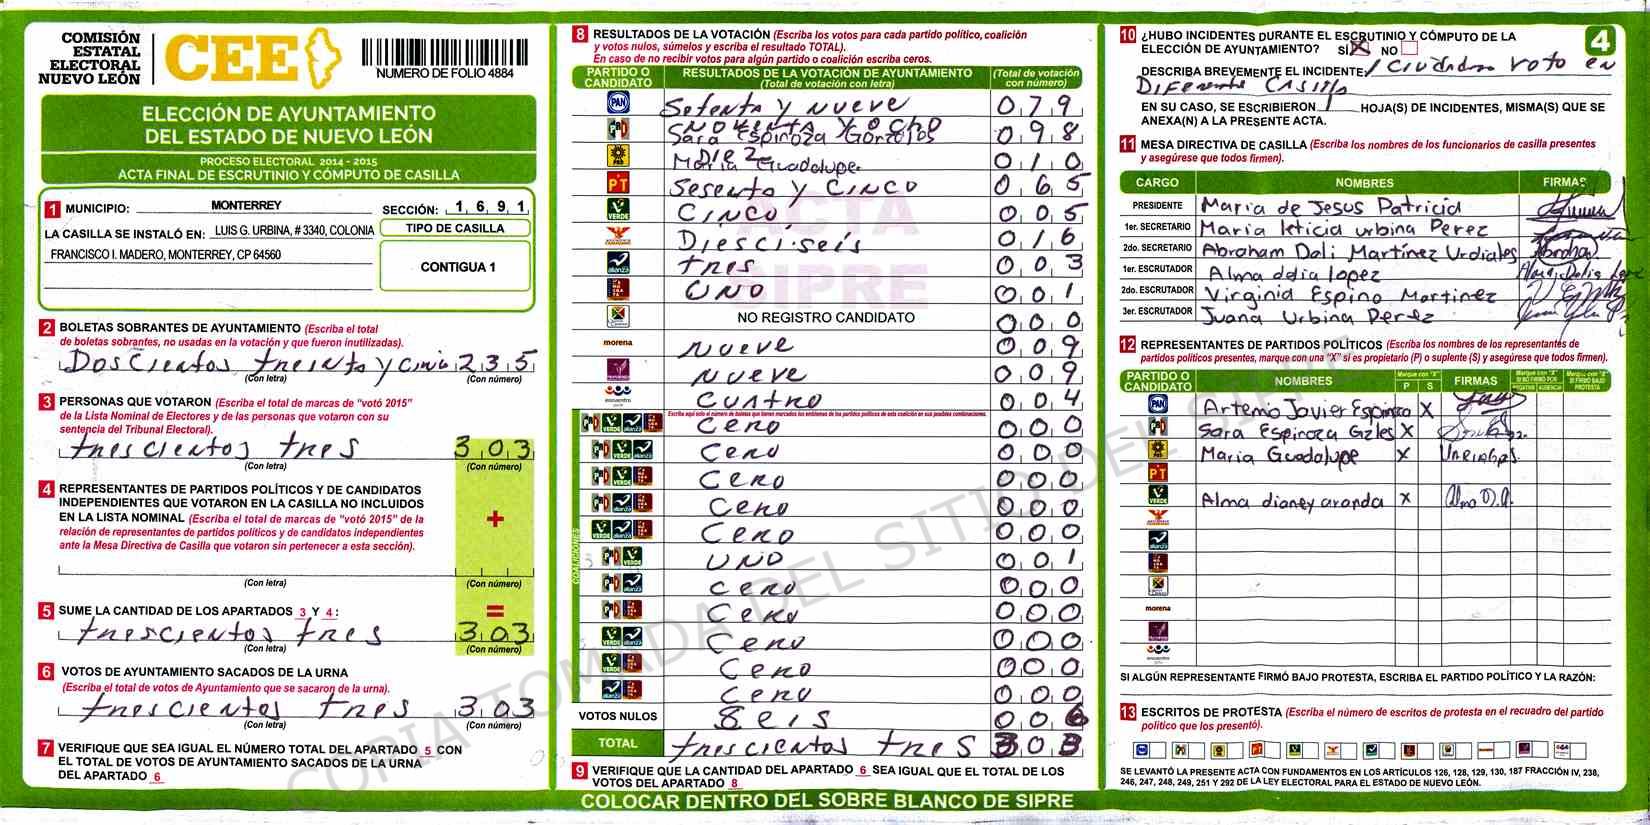 COMISIÓN
ESTATAL
ELECTORAL
NUEVO LEÓN
CEE
NUMERO DE FOLIO 4884
ELECCIÓN DE AYUNTAMIENTO
DEL ESTADO DE NUEVO LEÓN
PROCESO ELECTORAL 2014 - 2015
ACTA FINAL DE ESCRUTINIO Y CÓMPUTO DE CASILLA
1 MUNICIPIO: MONTERREY SECCIÓN: 1,6,9,1
LA CASILLA SE INSTALÓ EN: LUIS G. URBINA, # 3340, COLONIA
FRANCISCO I. MADERO, MONTERREY, CP 64560
TIPO DE CASILLA
CONTIGUA 1
2 BOLETAS SOBRANTES DE AYUNTAMIENTO (Escriba el total
de boletas sobrantes, no usadas en la votación y que fueron inutilizadas).
Doscientos treinta y cinco 2,3,5
(Con letra) (Con número)
3 PERSONAS QUE VOTARON (Escriba el total de marcas de "votó 2015"
de la Lista Nominal de Electores y de las personas que votaron con su
sentencia del Tribunal Electoral).
trescientos tres 3,0,3
(Con letra) (Con número)
4 REPRESENTANTES DE PARTIDOS POLÍTICOS Y DE CANDIDATOS
INDEPENDIENTES QUE VOTARON EN LA CASILLA NO INCLUIDOS
EN LA LISTA NOMINAL (Escriba el total de marcas de "votó 2015" de la
relación de representantes de partidos políticos y de candidatos independientes
ante la Mesa Directiva de Casilla que votaron sin pertenecer a esta sección).
+
(Con letra) (Con número)
5 SUME LA CANTIDAD DE LOS APARTADOS 3 Y 4 :
=
trescientos tres 3,0,3
(Con letra) (Con número)
6 VOTOS DE AYUNTAMIENTO SACADOS DE LA URNA
(Escriba el total de votos de Ayuntamiento que se sacaron de la urna).
trescientos tres 3,0,3
(Con letra) (Con número)
7 VERIFIQUE QUE SEA IGUAL EL NÚMERO TOTAL DEL APARTADO 5 CON
EL TOTAL DE VOTOS DE AYUNTAMIENTO SACADOS DE LA URNA
DEL APARTADO 6
8 RESULTADOS DE LA VOTACIÓN (Escriba los votos para cada partido político, coalición
y votos nulos, súmelos y escriba el resultado TOTAL).
En caso de no recibir votos para algún partido o coalición escriba ceros.
PARTIDO O CANDIDATO RESULTADOS DE LA VOTACIÓN DE AYUNTAMIENTO (Total de votación con letra) (Total de votación con número)
PAN Setenta y nueve 0,7,9
Noventa y ocho
PRD Sara Espinoza Gonzales 0,9,8
Diez
PRD Maria Guadalupe 0,1,0
PT Sesenta y cinco 0,6,5
VERDE Cinco 0,0,5
Diesci-seis 0,1,6
alianza tres 0,0,3
UNO 0,0,1
NO REGISTRO CANDIDATO 0,0,0
morena nueve 0,0,9
nueve 0,0,9
encuentro cuatro 0,0,4
Escriba aquí solo el número de boletas que tienen marcados los emblemas de los partidos políticos de esta coalición en sus posibles combinaciones.
COALICIONES
Cero 0,0,0
Cero 0,0,0
Cero 0,0,0
Cero 0,0,0
Cero 0,0,0
UNO 0,0,1
Cero 0,0,0
Cero 0,0,0
Cero 0,0,0
Cero 0,0,0
Cero 0,0,0
VOTOS NULOS Seis 0,0,6
TOTAL trescientos tres 3,0,3
9 VERIFIQUE QUE LA CANTIDAD DEL APARTADO 6 SEA IGUAL QUE EL TOTAL DE LOS
VOTOS DEL APARTADO 8
COLOCAR DENTRO DEL SOBRE BLANCO DE SIPRE
ACTA
SIPRE
COPIA TOMADA DEL SITIO DEL SIPRE
10 ¿HUBO INCIDENTES DURANTE EL ESCRUTINIO Y CÓMPUTO DE LA
ELECCIÓN DE AYUNTAMIENTO? SI X NO
4
DESCRIBA BREVEMENTE EL INCIDENTE: 1 Ciudadano voto en
Diferente Casilla
EN SU CASO, SE ESCRIBIERON 1 HOJA(S) DE INCIDENTES, MISMA(S) QUE SE
ANEXA(N) A LA PRESENTE ACTA.
11 MESA DIRECTIVA DE CASILLA (Escriba los nombres de los funcionarios de casilla presentes
y asegúrese que todos firmen).
CARGO NOMBRES FIRMAS
PRESIDENTE Maria de Jesus Patricia
1er. SECRETARIO Maria leticia urbina Perez
2do. SECRETARIO Abraham Dali Martínez Urdiales Abraham
1er. ESCRUTADOR Alma delia lopez Alma Delia Lope
2do. ESCRUTADOR Virginia Espino Martinez
3er. ESCRUTADOR Juana Urbina Perez
12 REPRESENTANTES DE PARTIDOS POLÍTICOS (Escriba los nombres de los representantes de
partidos políticos presentes, marque con una "X" si es propietario (P) o suplente (S) y asegúrese que todos firmen).
PARTIDO O CANDIDATO NOMBRES Marque con "X" P S FIRMAS Marque con "X" SI NO FIRMÓ POR NEGATIVA AUSENCIA Marque con "X" SI FIRMÓ BAJO PROTESTA
PAN Artemo Javier Espinoza X
Sara Espinoza Gzles X
PRD Maria Guadalupe X
PT
VERDE Alma dianey aranda X Alma D.A.
alianza
morena
encuentro
SI ALGÚN REPRESENTANTE FIRMÓ BAJO PROTESTA, ESCRIBA EL PARTIDO POLÍTICO Y LA RAZÓN:
13 ESCRITOS DE PROTESTA (Escriba el número de escritos de protesta en el recuadro del partido
político que los presentó).
SE LEVANTÓ LA PRESENTE ACTA CON FUNDAMENTOS EN LOS ARTÍCULOS 126, 128, 129, 130, 187 FRACCIÓN IV, 238,
246, 247, 248, 249, 251 Y 292 DE LA LEY ELECTORAL PARA EL ESTADO DE NUEVO LEÓN.